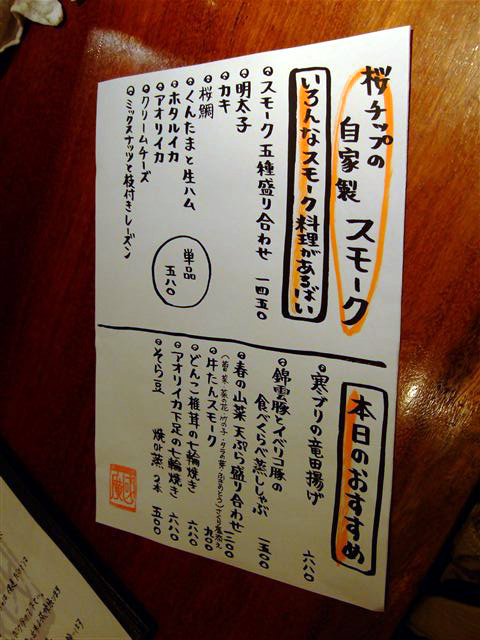 桜チップの
自家製
スモーク
いろんなスモーク料理があるばい
スモーク五種盛り合わせ 一四五〇
明太子
カキ
桜鯛
くんたまと生ハム
ホタルイカ
アオリイカ
クリームチーズ
ミックスナッツと枝付きレーズン
単品
五八〇
本日のおすすめ
寒ブリの竜田揚げ 六八〇
錦雲豚とイベリコ豚の
食べくらべ蒸ししゃぶ 一五〇〇
春の山菜天ぷら盛り合わせ
牛たんスモーク 九〇〇
どんこ椎茸の七輪焼き 六八〇
アオリイカ下足の七輪焼き 六八〇
そら豆 焼or蒸 3本 五〇〇